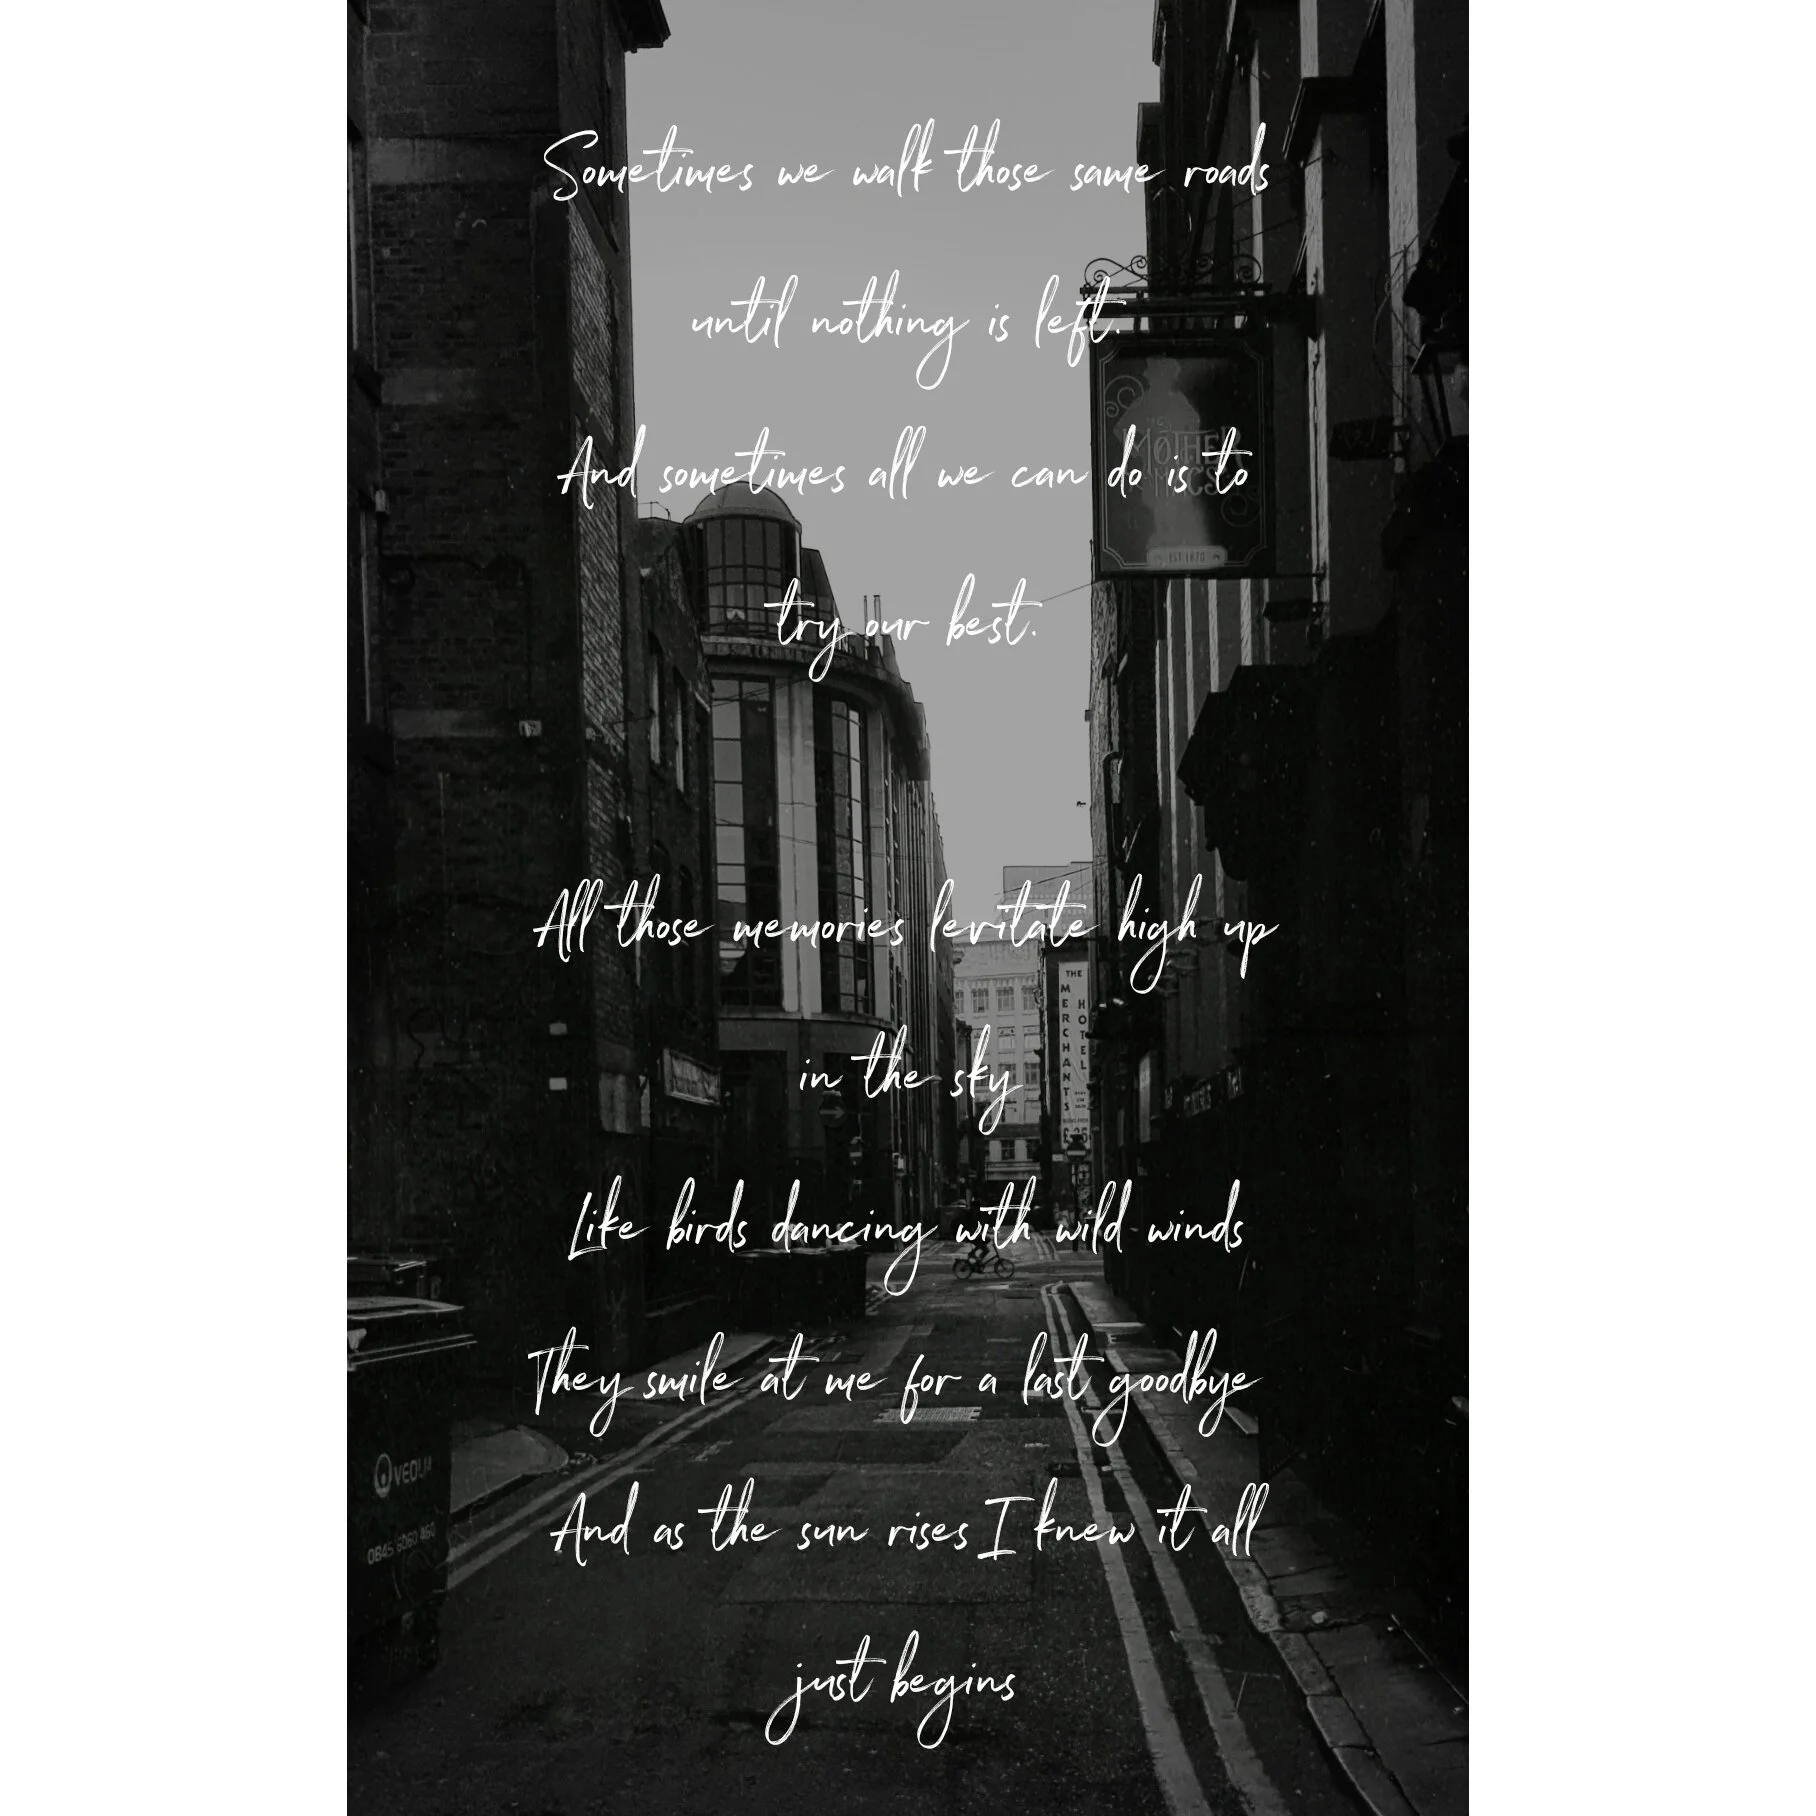 Sometimes we walk those same roads
until nothing is left.
And sometimes all we can do is to
try our best.
All those memories levitate high up
in the sky
Like birds dancing with wild winds
They smile at me for a last goodbye
And as the sun rises I knew it all
just begins
MOTHER
MACS
EST 1870
THE
MERCHANTS
HOTEL
VEOLIA
0845 6060 460